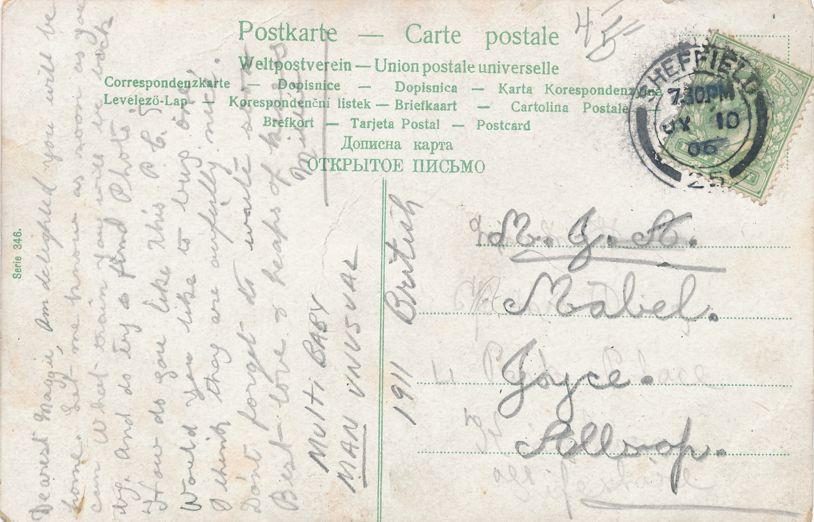 Postkarte — Carte postale
4/5
Weltpostverein — Union postale universelle
Correspondenzkarte — Dopisnice — Dopisnica — Karta Korespondencyjna
Levelező-Lap — Korespondenční listek — Briefkaart — Cartolina Postale
Brefkort — Tarjeta Postal — Postcard
Дописна карта
ОТКРЫТОЕ ПИСЬМО
SHEFFIELD
7.30PM
JY 10
06
25
Serie 346.
Dearest Maggie, Am delighted you will be
home. Let me know as soon as you
can what train you will be back
by. And do try & find Photo
How do you like this P.C.?
Would you like to buy one?
I think they are awfully nice.
Don't forget to write soon
Best love & heaps of kisses
MULTI BABY
MAN UNUSUAL
1911 British
M. J. A.
Mabel.
Joyce.
Allsop.